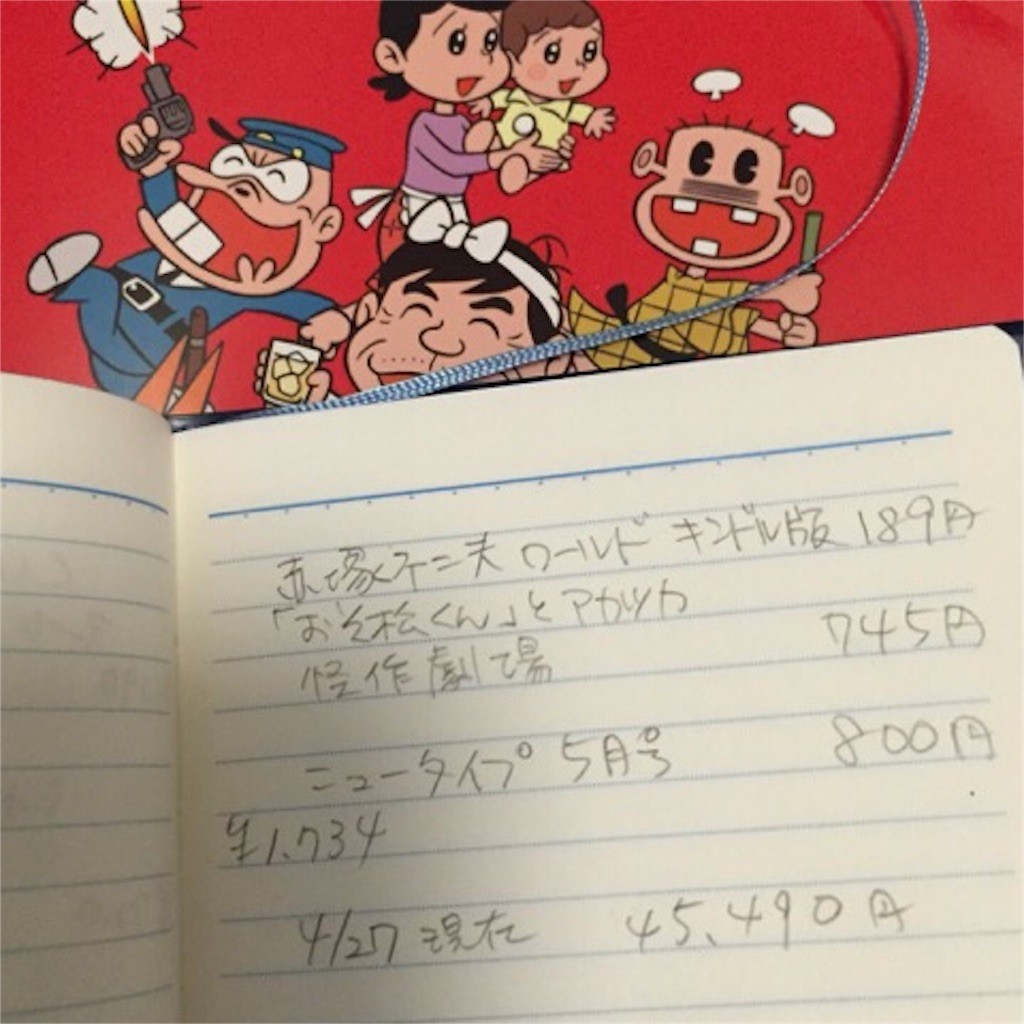 赤塚不二夫ワールド キンドル版 189円
「おそ松くん」とアカツカ
怪作劇場 745円
ニュータイプ 5月号 800円
¥1.734
4/27 現在 45.490円